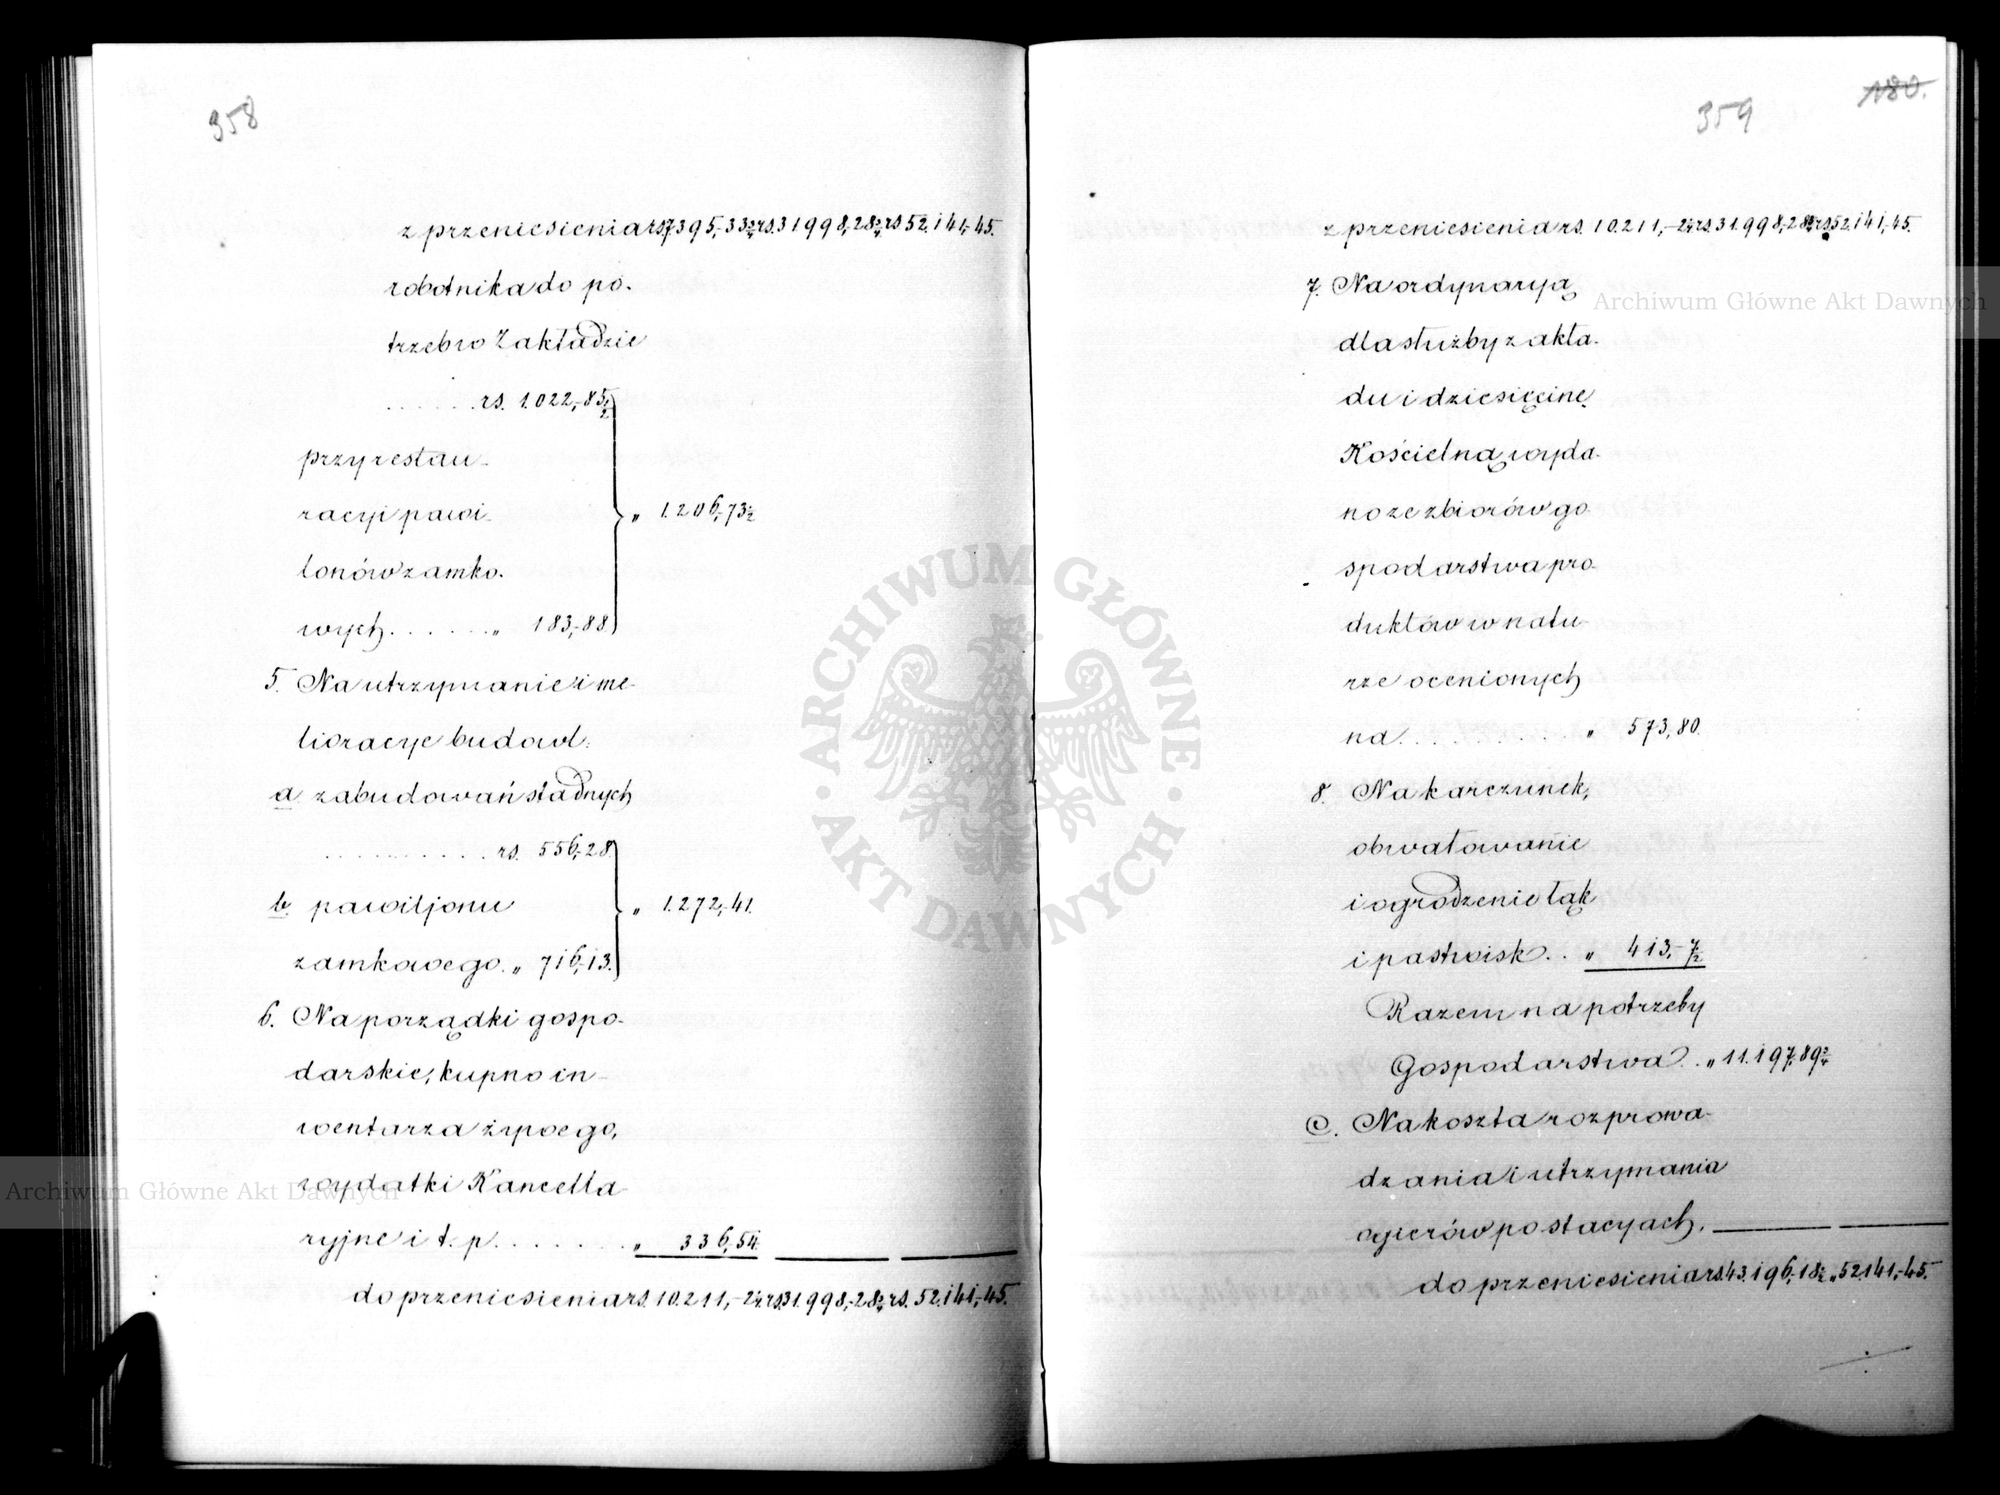 358
z przeniesienia rs. 7395,-33¾ rs. 31998,-28¾ rs 52.141,-45.
robotnika do po-
trzeb w Zakładzie
. . . . . . rs. 1.022,-85½
przy restau-
racyi pawi-
lonów zamko-
wych . . . . . . „ 183,-88
„ 1.206,-73½
5. Na utrzymanie i me-
lioracye budowl:
a zabudowań stadnych
. . . . . . . . . . rs. 556,-28
b. pawiljonu
zamkowego. „ 716,-13.
„ 1.272,-41.
6. Na porządki gospo-
darskie, kupno in-
wentarza żywego,
wydatki Kancella-
ryjne i t. p. . . . . . . . „ 336,54.
do przeniesienia rs. 10.211,-2¼ rs. 31.998,-28¾ rs. 52.141,-45.
359
180.
z przeniesienia rs. 10.211,-2¼ rs. 31.998,-28¾ rs. 52.141,-45.
7. Na ordynaryą
dla służby zakła-
du i dziesięcinę
Kościelną wyda-
no ze zbiorów go-
spodarstwa pro-
duktów w natu-
rze ocenionych
na . . . . . . . . . . „ 573,80.
8. Na karczunek,
obwałowanie
i ogrodzenie łąk
i pastwisk . . „ 413,-7½
Razem na potrzeby
Gospodarstwa . . „ 11.197,89¾
C. Na koszta rozprowa-
dzania i utrzymania
ogierów po stacyach.
do przeniesienia rs. 43.196,-18½ „ 52.141,-45.
Archiwum Główne Akt Dawnych
Archiwum Główne Akt Dawnych
ARCHIWUM GŁÓWNE AKT DAWNYCH